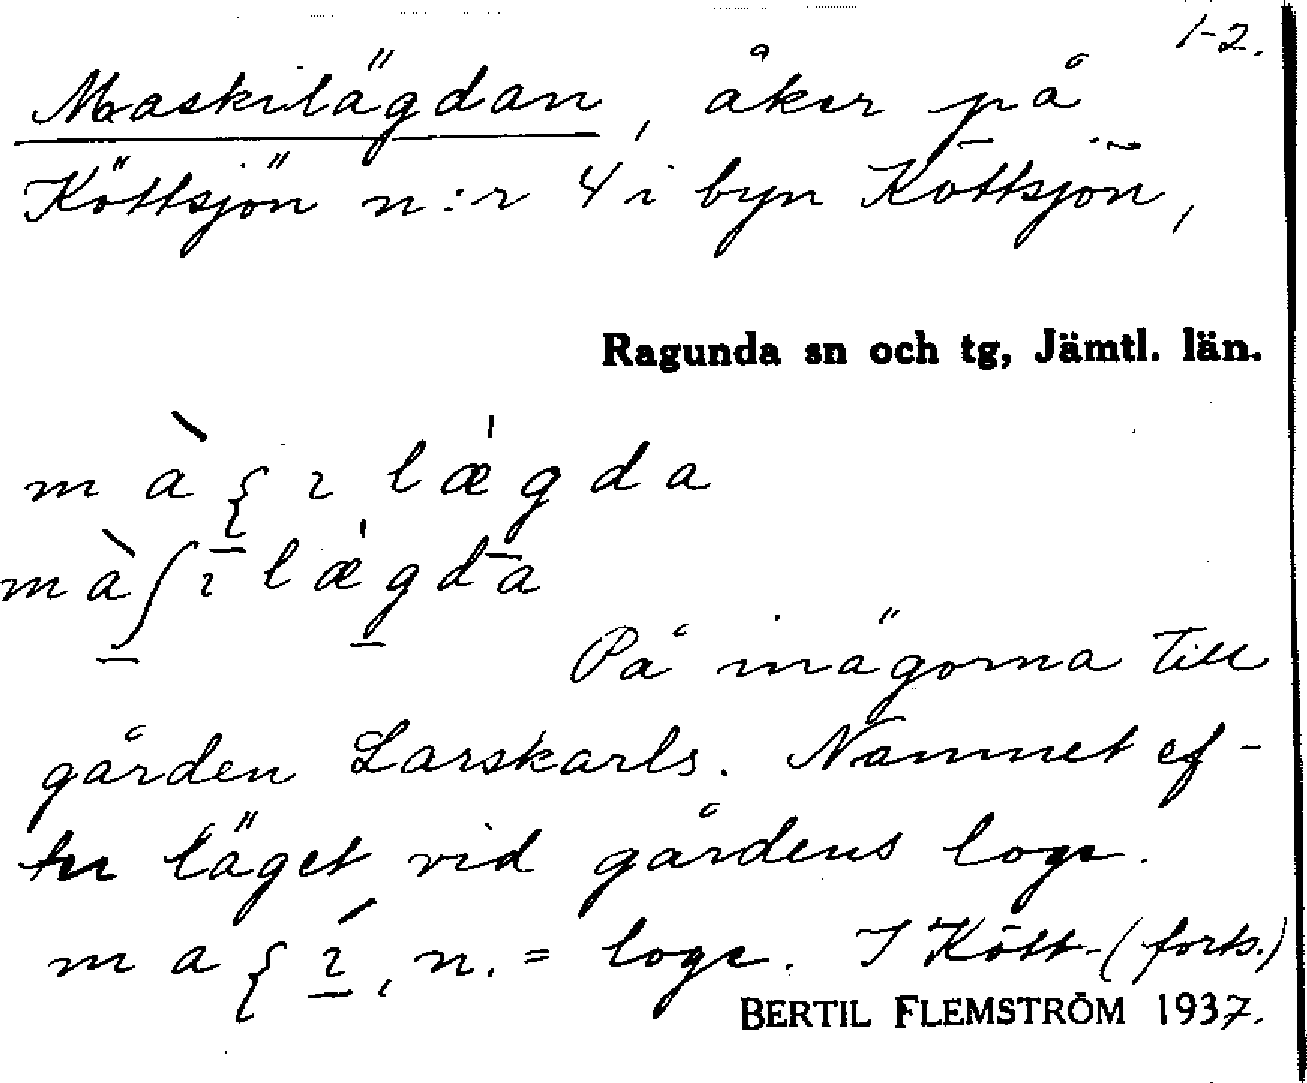 1-2.
Maskilägdan, åker på
Köttsjön n:r 4 i byn Köttsjön,
Ragunda sn och tg, Jämtl. län.
På inägorna till
gården Larskarls. Namnet ef-
ter läget vid gårdens loge.
n. = loge. I Kött- (forts.)
BERTIL FLEMSTRÖM 1937.